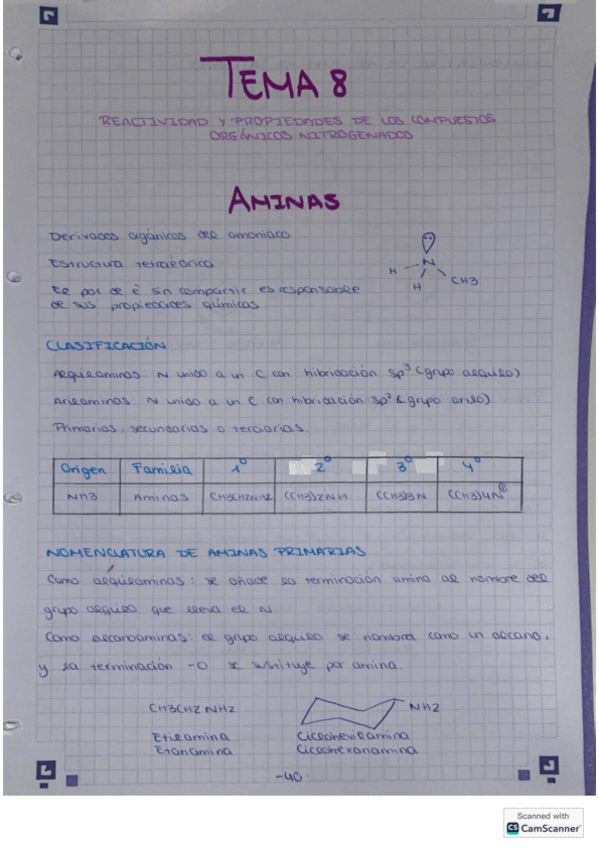 TEMA 8
REACTIVIDAD Y PROPIEDADES DE LOS COMPUESTOS
ORGÁNICOS NITROGENADOS
AMINAS
Derivados orgánicos del amoniaco
Estructura tetraédrica
El par de é sin compartir es responsable
de sus propiedades químicas
N
H
H
CH3
CLASIFICACIÓN
Alquilaminas: N unido a un C con hibridación sp³ (grupo alquilo)
Arilaminas: N unido a un C con hibridación sp² (grupo arilo)
Primarias, secundarias o terciarias.
Origen Familia 1º 2º 3º 4º
NH3 Aminas CH3CH2NH2 (CH3)2NH (CH3)3N (CH3)4N⊕
NOMENCLATURA DE AMINAS PRIMARIAS
Como alquilaminas: se añade la terminación amina al nombre del
grupo alquilo que lleva el N.
Como alcanoaminas: el grupo alquilo se nombra como un alcano,
y la terminación -O se sustituye por amina.
CH3CH2NH2
NH2
Etilamina Ciclohexilamina
Etanamina Ciclohexanamina
-40-
Scanned with
CS CamScanner